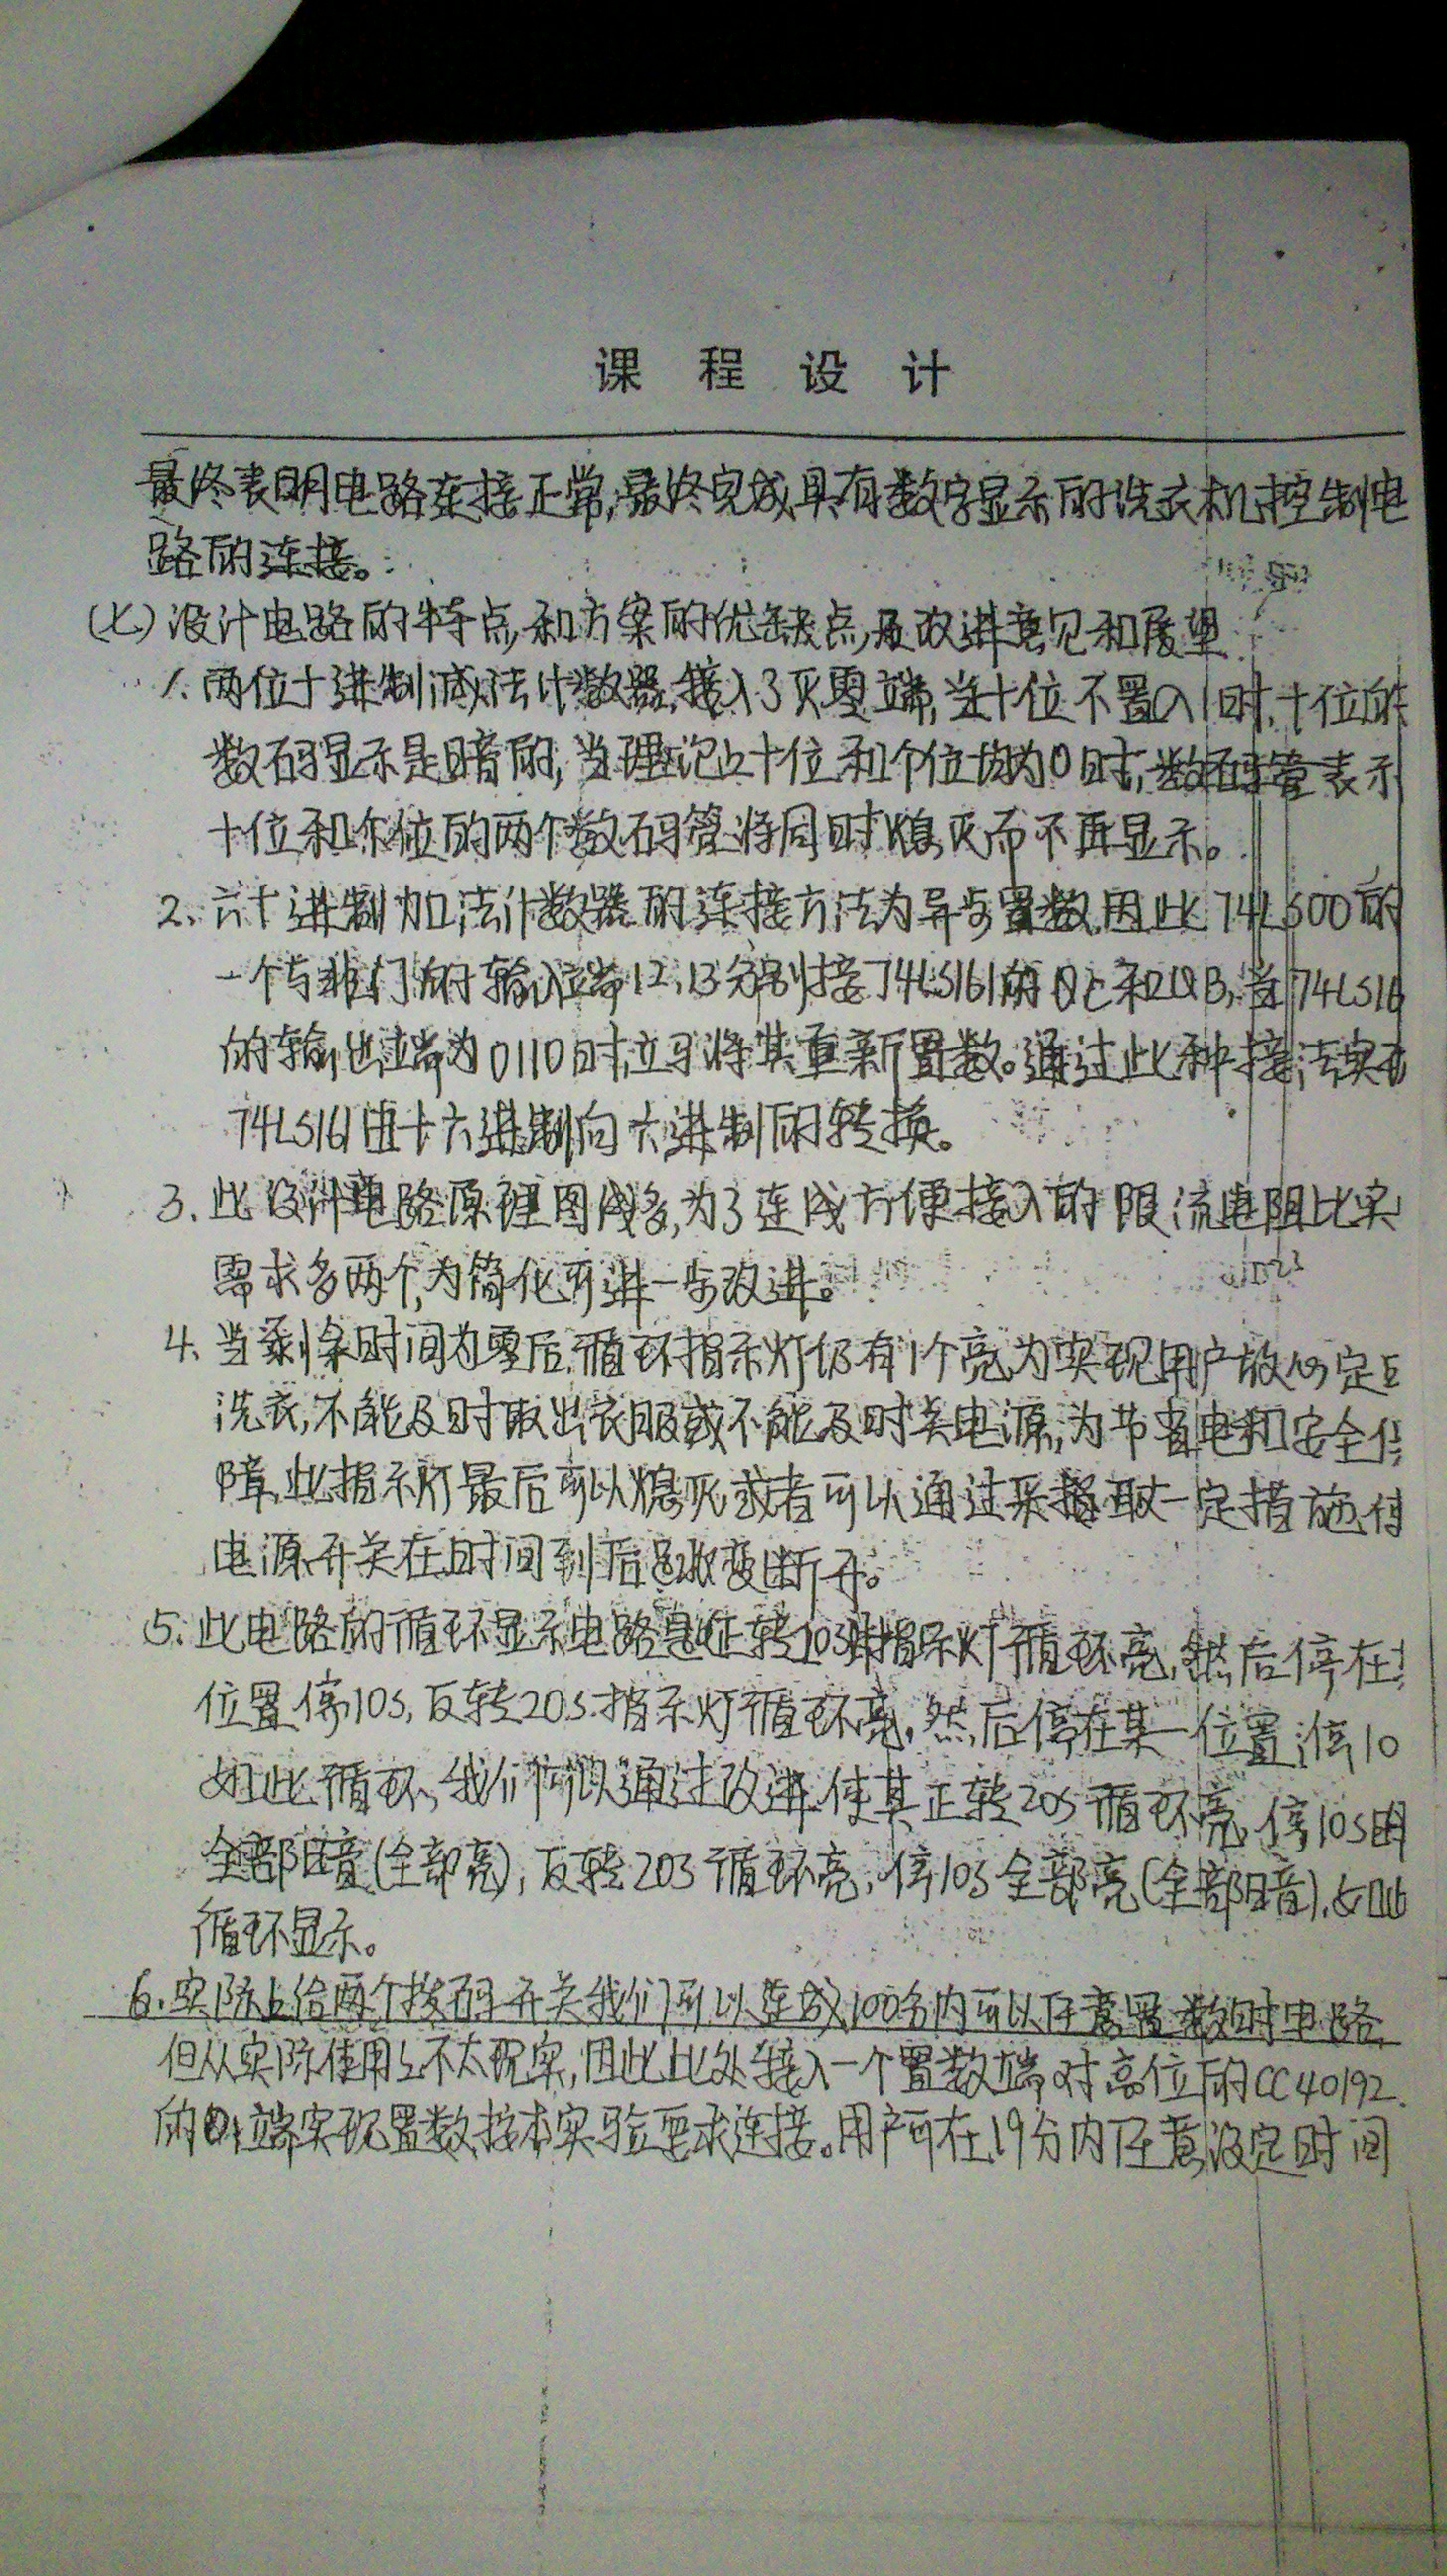 课程设计
最终表明电路连接正常,最终完成具有数字显示的洗衣机控制电
路的连接。
(七)设计电路的特点和方案的优缺点,及改进意见和展望
1、两位十进制减法计数器,接入了灭零端,当十位不置入1时,十位的
数码显示是暗的,当理论上十位和个位均为0时,数码管表示
十位和个位的两个数码管将同时熄灭而不再显示。
2、六十进制加法计数器的连接方法为异步置数,因此74LS00的
一个与非门的输入端12,13分别接74LS161的QC和QB,当74LS16
的输出端为0110时,立马将其重新置数。通过此种接法实
74LS161由十六进制向六进制的转换。
3、此设计电路原理图线多,为了连线方便接入的限流电阻比实
需求多两个,为简化可进一步改进。
4、当剩余时间为零后,循环指示灯仍有1个亮,为实现用户放心定
洗衣,不能及时取出衣服或不能及时关电源,为节省电和安全
障,此指示灯最后可以熄灭或者可以通过采取一定措施使
电源开关在时间到后断开。
5、此电路的循环显示电路是正转指示灯循环亮,然后停在
位置停10s,反转20s指示灯循环亮,然后停在某一位置,停10
如此循环,我们可以通过改进使其正转20s循环亮,停10s
全部暗(全部亮),反转20s循环亮,停10s全部亮(全部暗),如此
循环显示。
6、实际上给两个拨码开关我们可以连成100分内可以任意置数时电路,
但从实际使用上不太现实,因此此处接入一个置数端,对高位的CC40192
的D1端实现置数,按本实验要求连接。用户可在19分内任意设定时间